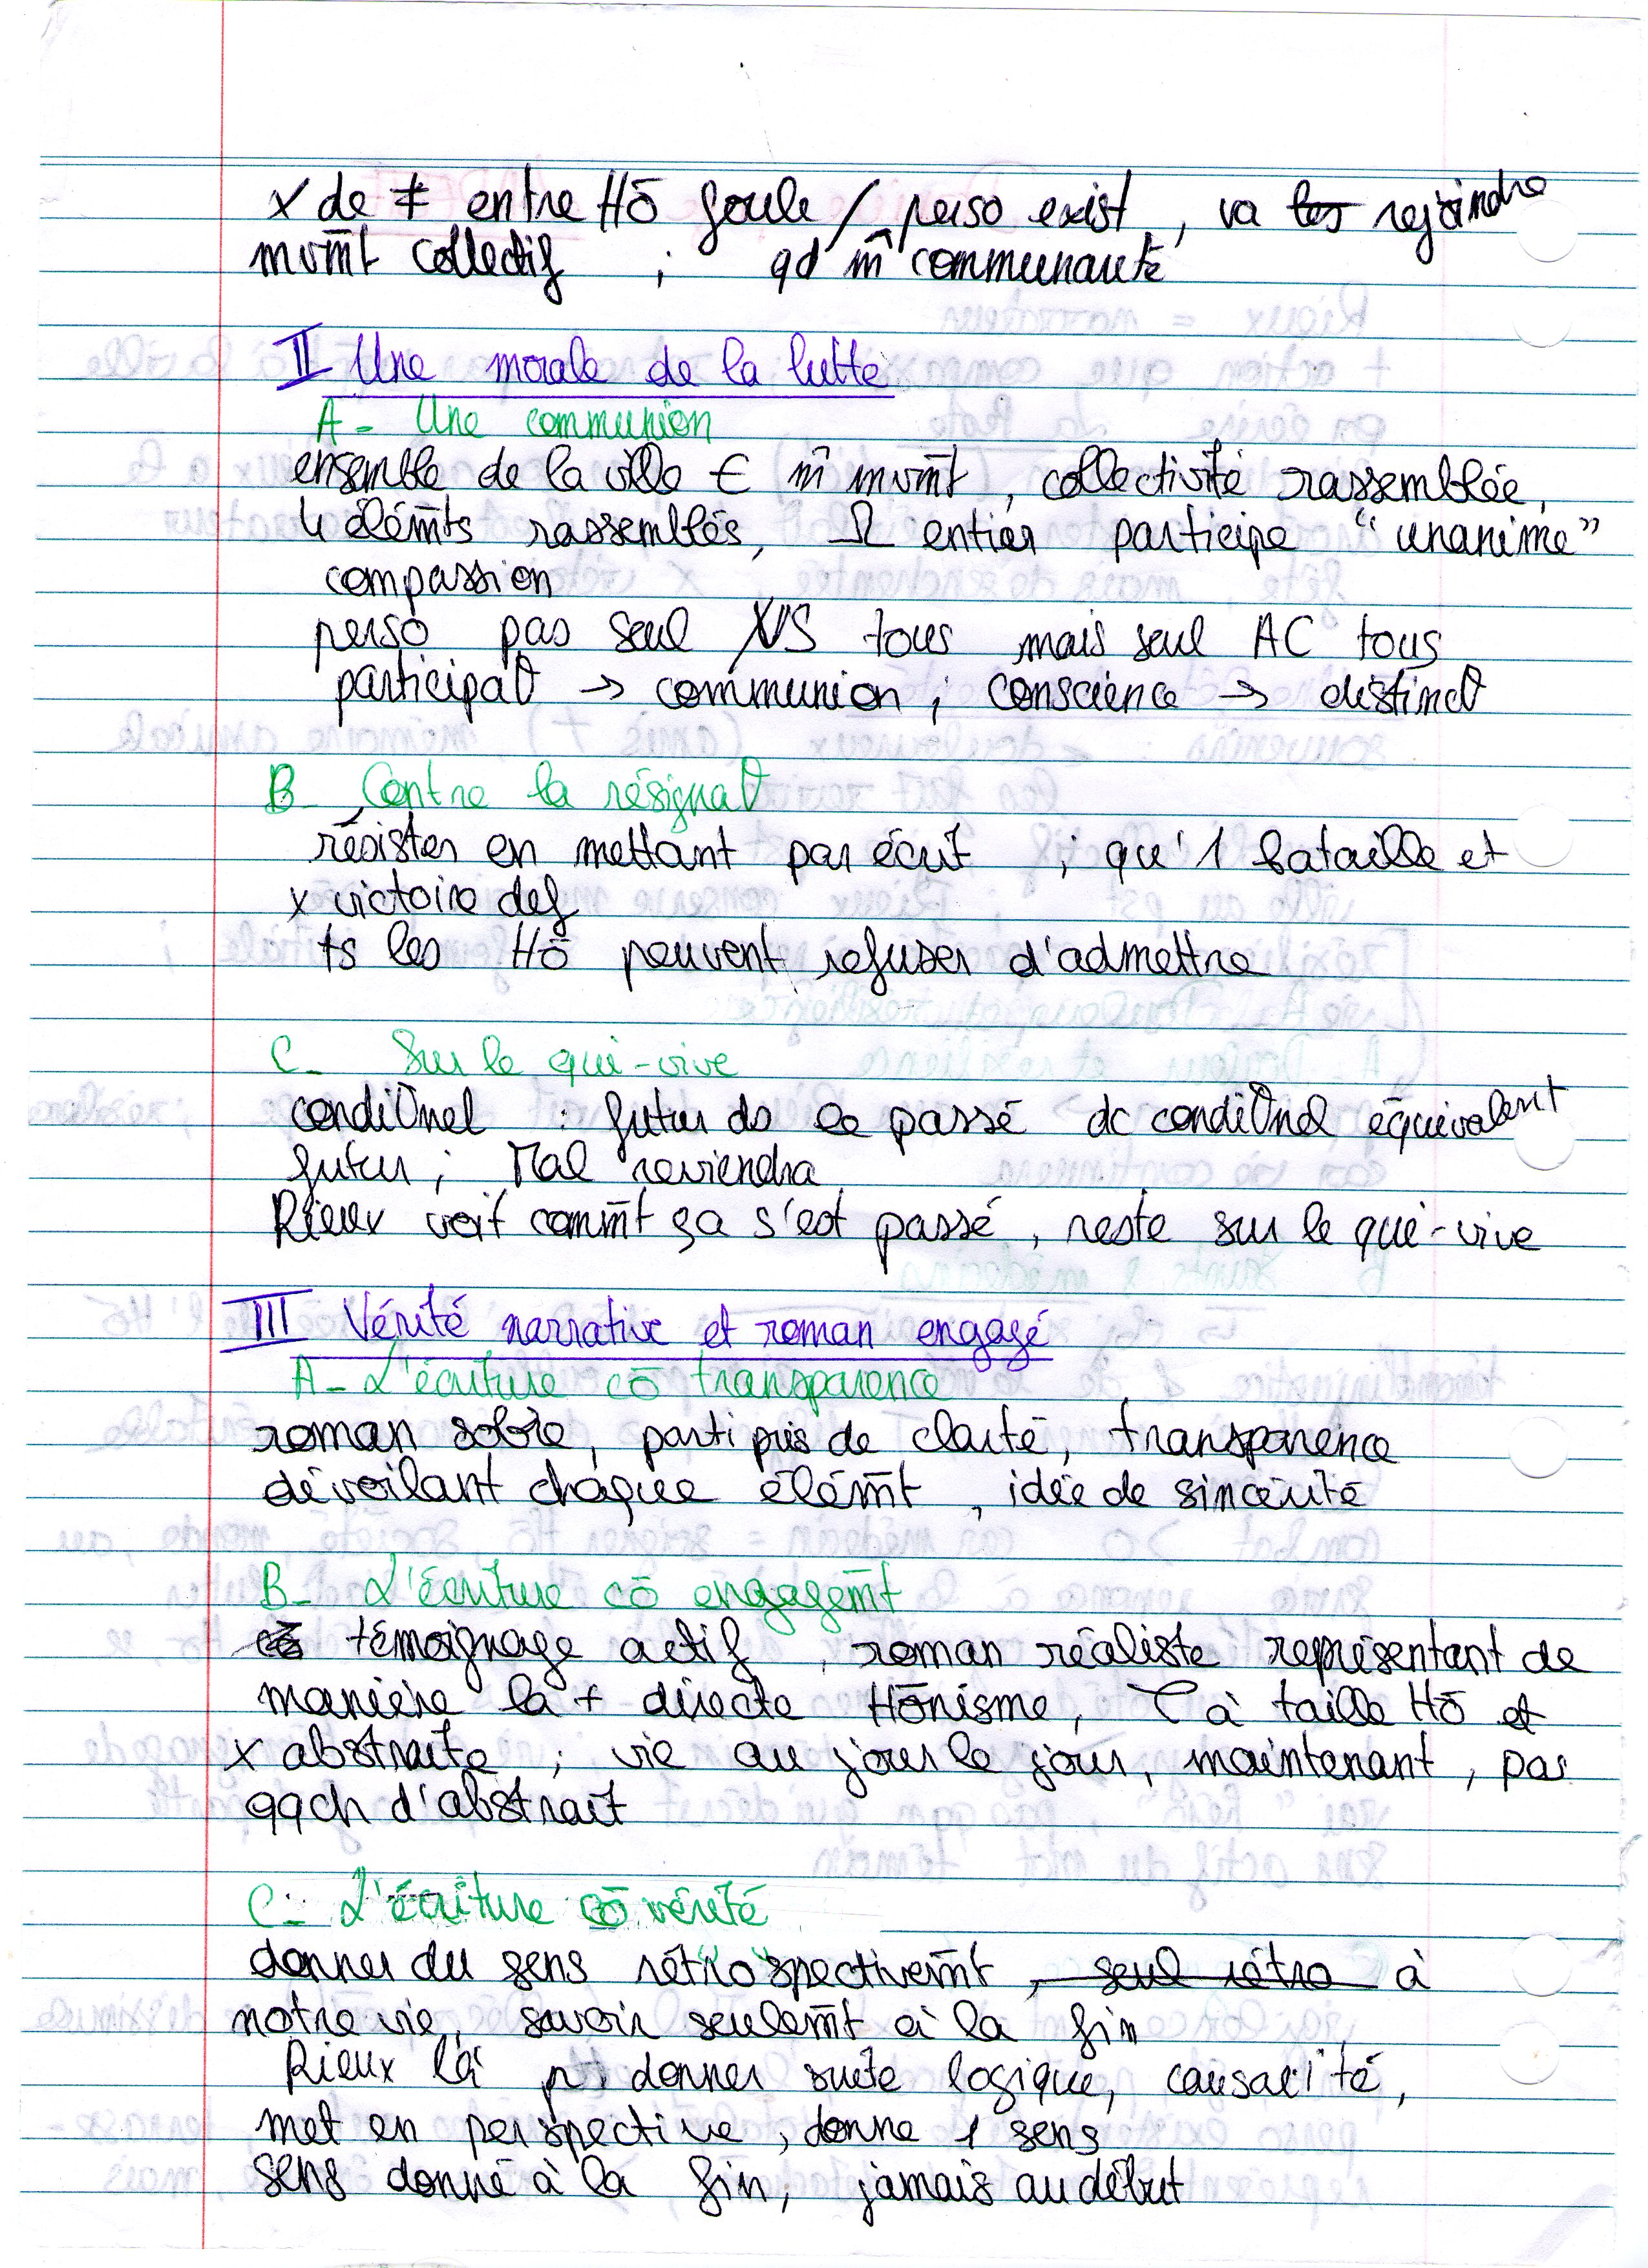 x de ≠ entre Hō foule / perso exist, va les rejoindre
mvm̄t collectif ; qd m̂ communauté
II Une morale de la lutte
A - Une communion
ensemble de la ville € m̂ mvm̄t, collectivité rassemblée,
4 élém̄ts rassemblés, Ω entier participe "unanime"
compassion
perso pas seul VS tous mais seul AC tous
participatθ → communion ; conscience → distinctθ
B - Contre la résignatθ
résister en mettant par écrit ; qu'1 bataille et
x victoire def
ts les Hō peuvent refuser d'admettre
C - Sur le qui-vive
condiθnel : futur ds le passé dc condiθnel équivalent
futur ; Mal reviendra
Rieux voit comm̄t ça s'est passé, reste sur le qui-vive
III Vérité narrative et roman engagé
A - L'écriture cō transparence
roman sobre, parti pris de clarté, transparence
dévoilant chaque élém̄t, idée de sincérité
B - L'écriture cō engagem̄t
cō témoignage actif, roman réaliste représentant de
manière la + directe Hōnisme, à taille Hō et
x abstraite ; vie au jour le jour, maintenant, pas
qqch d'abstrait
C - L'écriture cō vérité
donner du sens rétrospectivem̄t, seul rétro à
notre vie, savoir seulem̄t à la fin
Rieux là pr donner suite logique, causalité,
met en perspective, donne 1 sens
sens donné à la fin, jamais au début